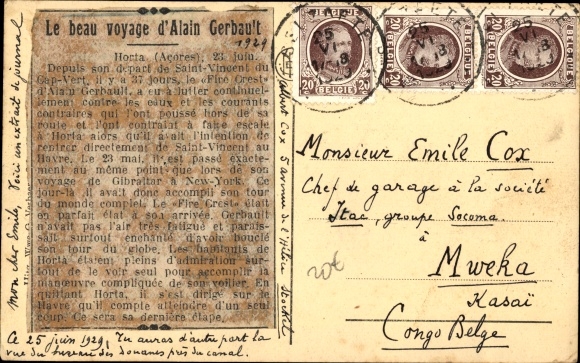 Le beau voyage d'Alain Gerbault
1929
Horta (Açores), 23 juin.
Depuis son départ de Saint-Vincent du
Cap-Vert, il y a 37 jours, le «Fire Crest»
d'Alain Gerbault, a eu à lutter continuel-
lement contre les eaux et les courants
contraires qui l'ont poussé hors de sa
route et l'ont contraint à faire escale
à Horta alors qu'il avait l'intention de
rentrer directement de Saint-Vincent au
Havre. Le 23 mai, il est passé exacte-
ment au même point que lors de son
voyage de Gibraltar à New-York. Ce
jour-là il avait donc accompli son tour
du monde complet. Le «Fire Crest» était
en parfait état à son arrivée. Gerbault
n'avait pas l'air très fatigué et parais-
sait surtout enchanté d'avoir bouclé
son tour du globe. Les habitants de
Horta étaient pleins d'admiration sur-
tout de le voir seul pour accomplir la
manœuvre compliquée de son voilier. En
quittant Horta, il s'est dirigé sur le
Havre qu'il compte atteindre d'un seul
coup. Ce sera sa dernière étape.
Mon cher Emile, Voici un extrait de journal
Ce 25 juin 1929, Tu auras d'autre part la
vue du bureau des douanes près du canal.
Albert Cox 5 avenue de l'
20 BELGIE 20
20 BELGIE 20
20 BELGIE 20
25
VI
8
Monsieur Emile Cox
Chef de garage à la société
Itac, groupe Socoma.
à
Mweka
Kasaï
Congo Belge